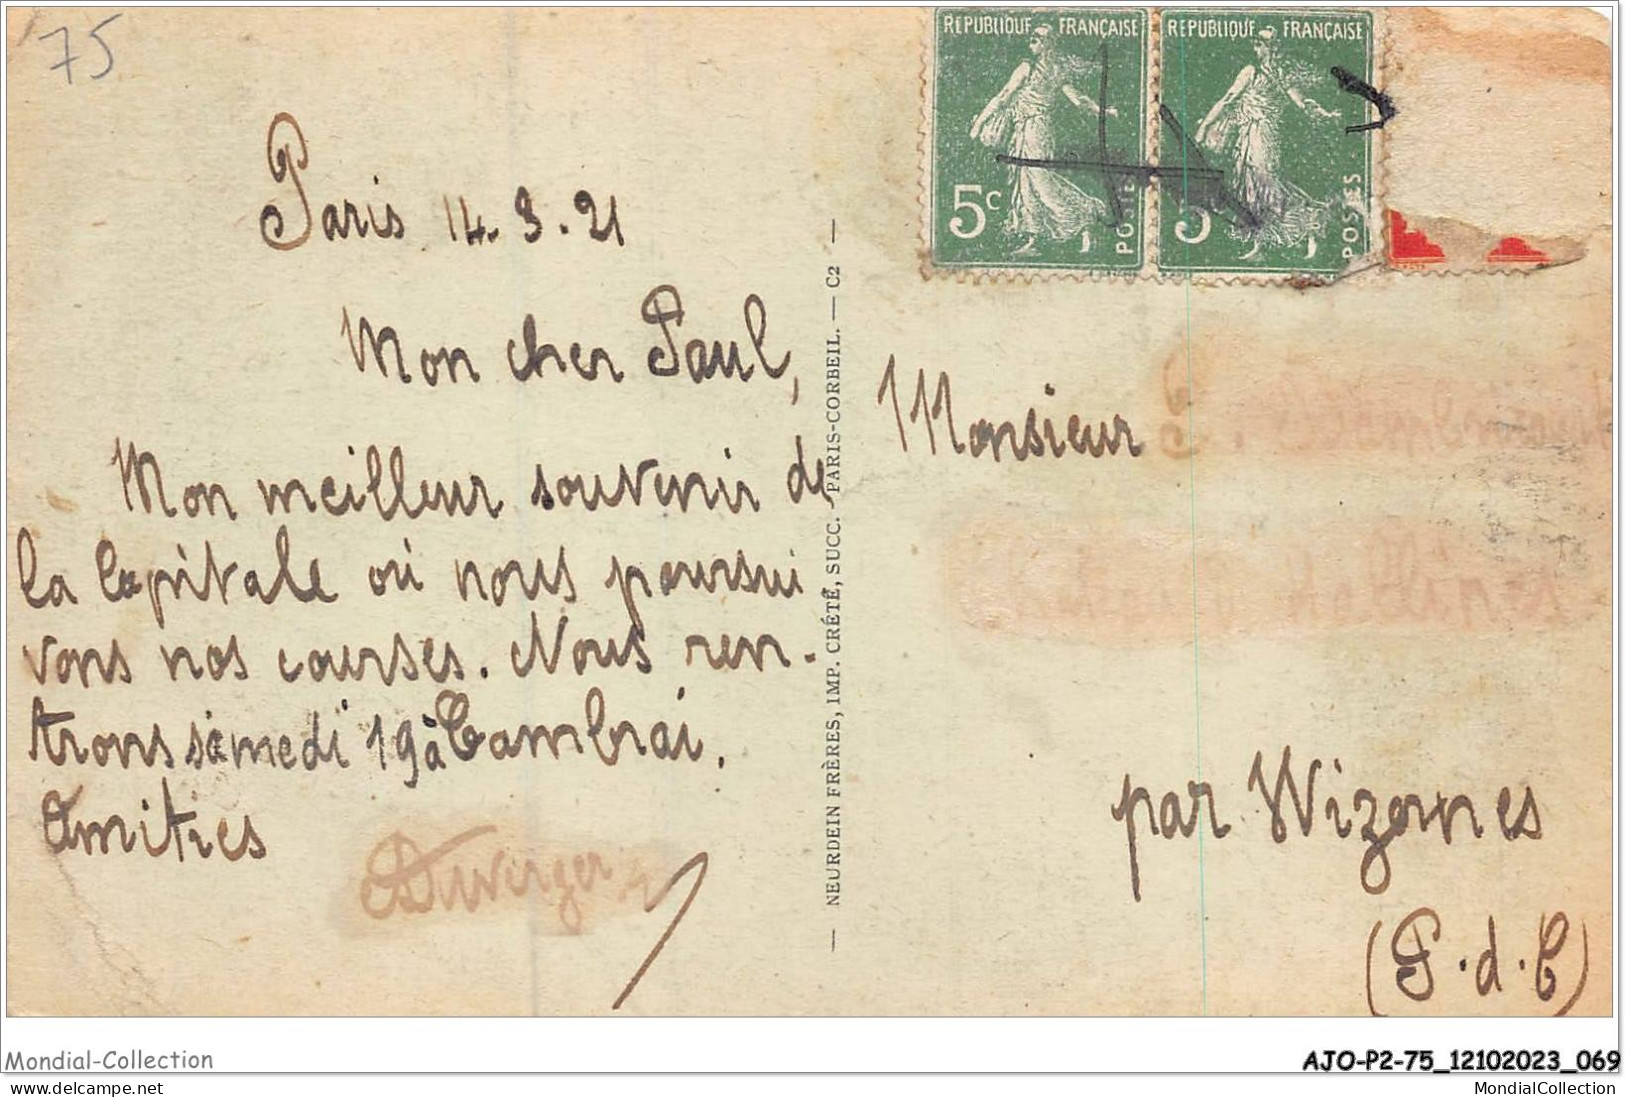 75
REPUBLIQUE FRANÇAISE
5c
POSTES
REPUBLIQUE FRANÇAISE
5
POSTES
Paris 14.3.21
Mon cher Paul,
Mon meilleur souvenir de
la Capitale où nous poursui
vons nos courses. Nous ren-
trons samedi 19 à Cambrai.
Amitiés
Duverger
NEURDEIN FRÈRES, IMP. CRÉTÉ, SUCC. PARIS-CORBEIL. — C2 —
Monsieur
par Wizernes
(P.d.C)
Mondial-Collection
AJO-P2-75_12102023_069
MondialCollection